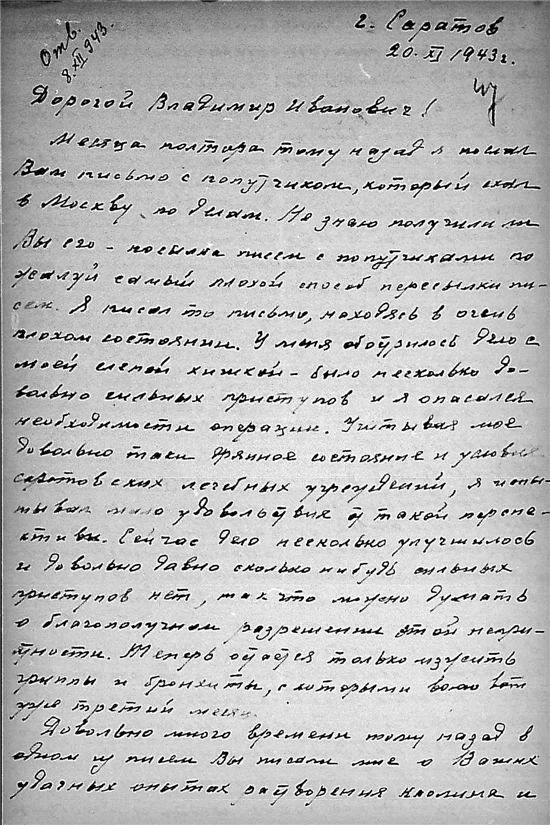 Отв.
8.XII 943.
г. Саратов
20. XI 1943 г.
Дорогой Владимир Иванович!
Месяца полтора тому назад я послал
Вам письмо с попутчиком, который ехал
в Москву по делам. Не знаю получили ли
Вы его - посылка писем с попутчиками по
жалуй самый плохой способ пересылки пи-
сем. Я писал то письмо, находясь в очень
плохом состоянии. У меня обострилось дело с
моей слепой кишкой - было несколько до-
вольно сильных приступов и я опасался
необходимости операции. Учитывая мое
довольно таки дрянное состояние и условия
саратовских лечебных учреждений, я испы-
тывал мало удовольствия от такой перспе-
ктивы. Сейчас дело несколько улучшилось
и довольно давно сколько нибудь сильных
приступов нет, так что можно думать
о благополучном разрешении этой непри-
ятности. Теперь остается только изжить
гриппы и бронхиты, с которыми вожусь вот
уже третий месяц.
Довольно много времени тому назад в
одном из писем Вы писали мне о Ваших
удачных опытах растворения каолина и